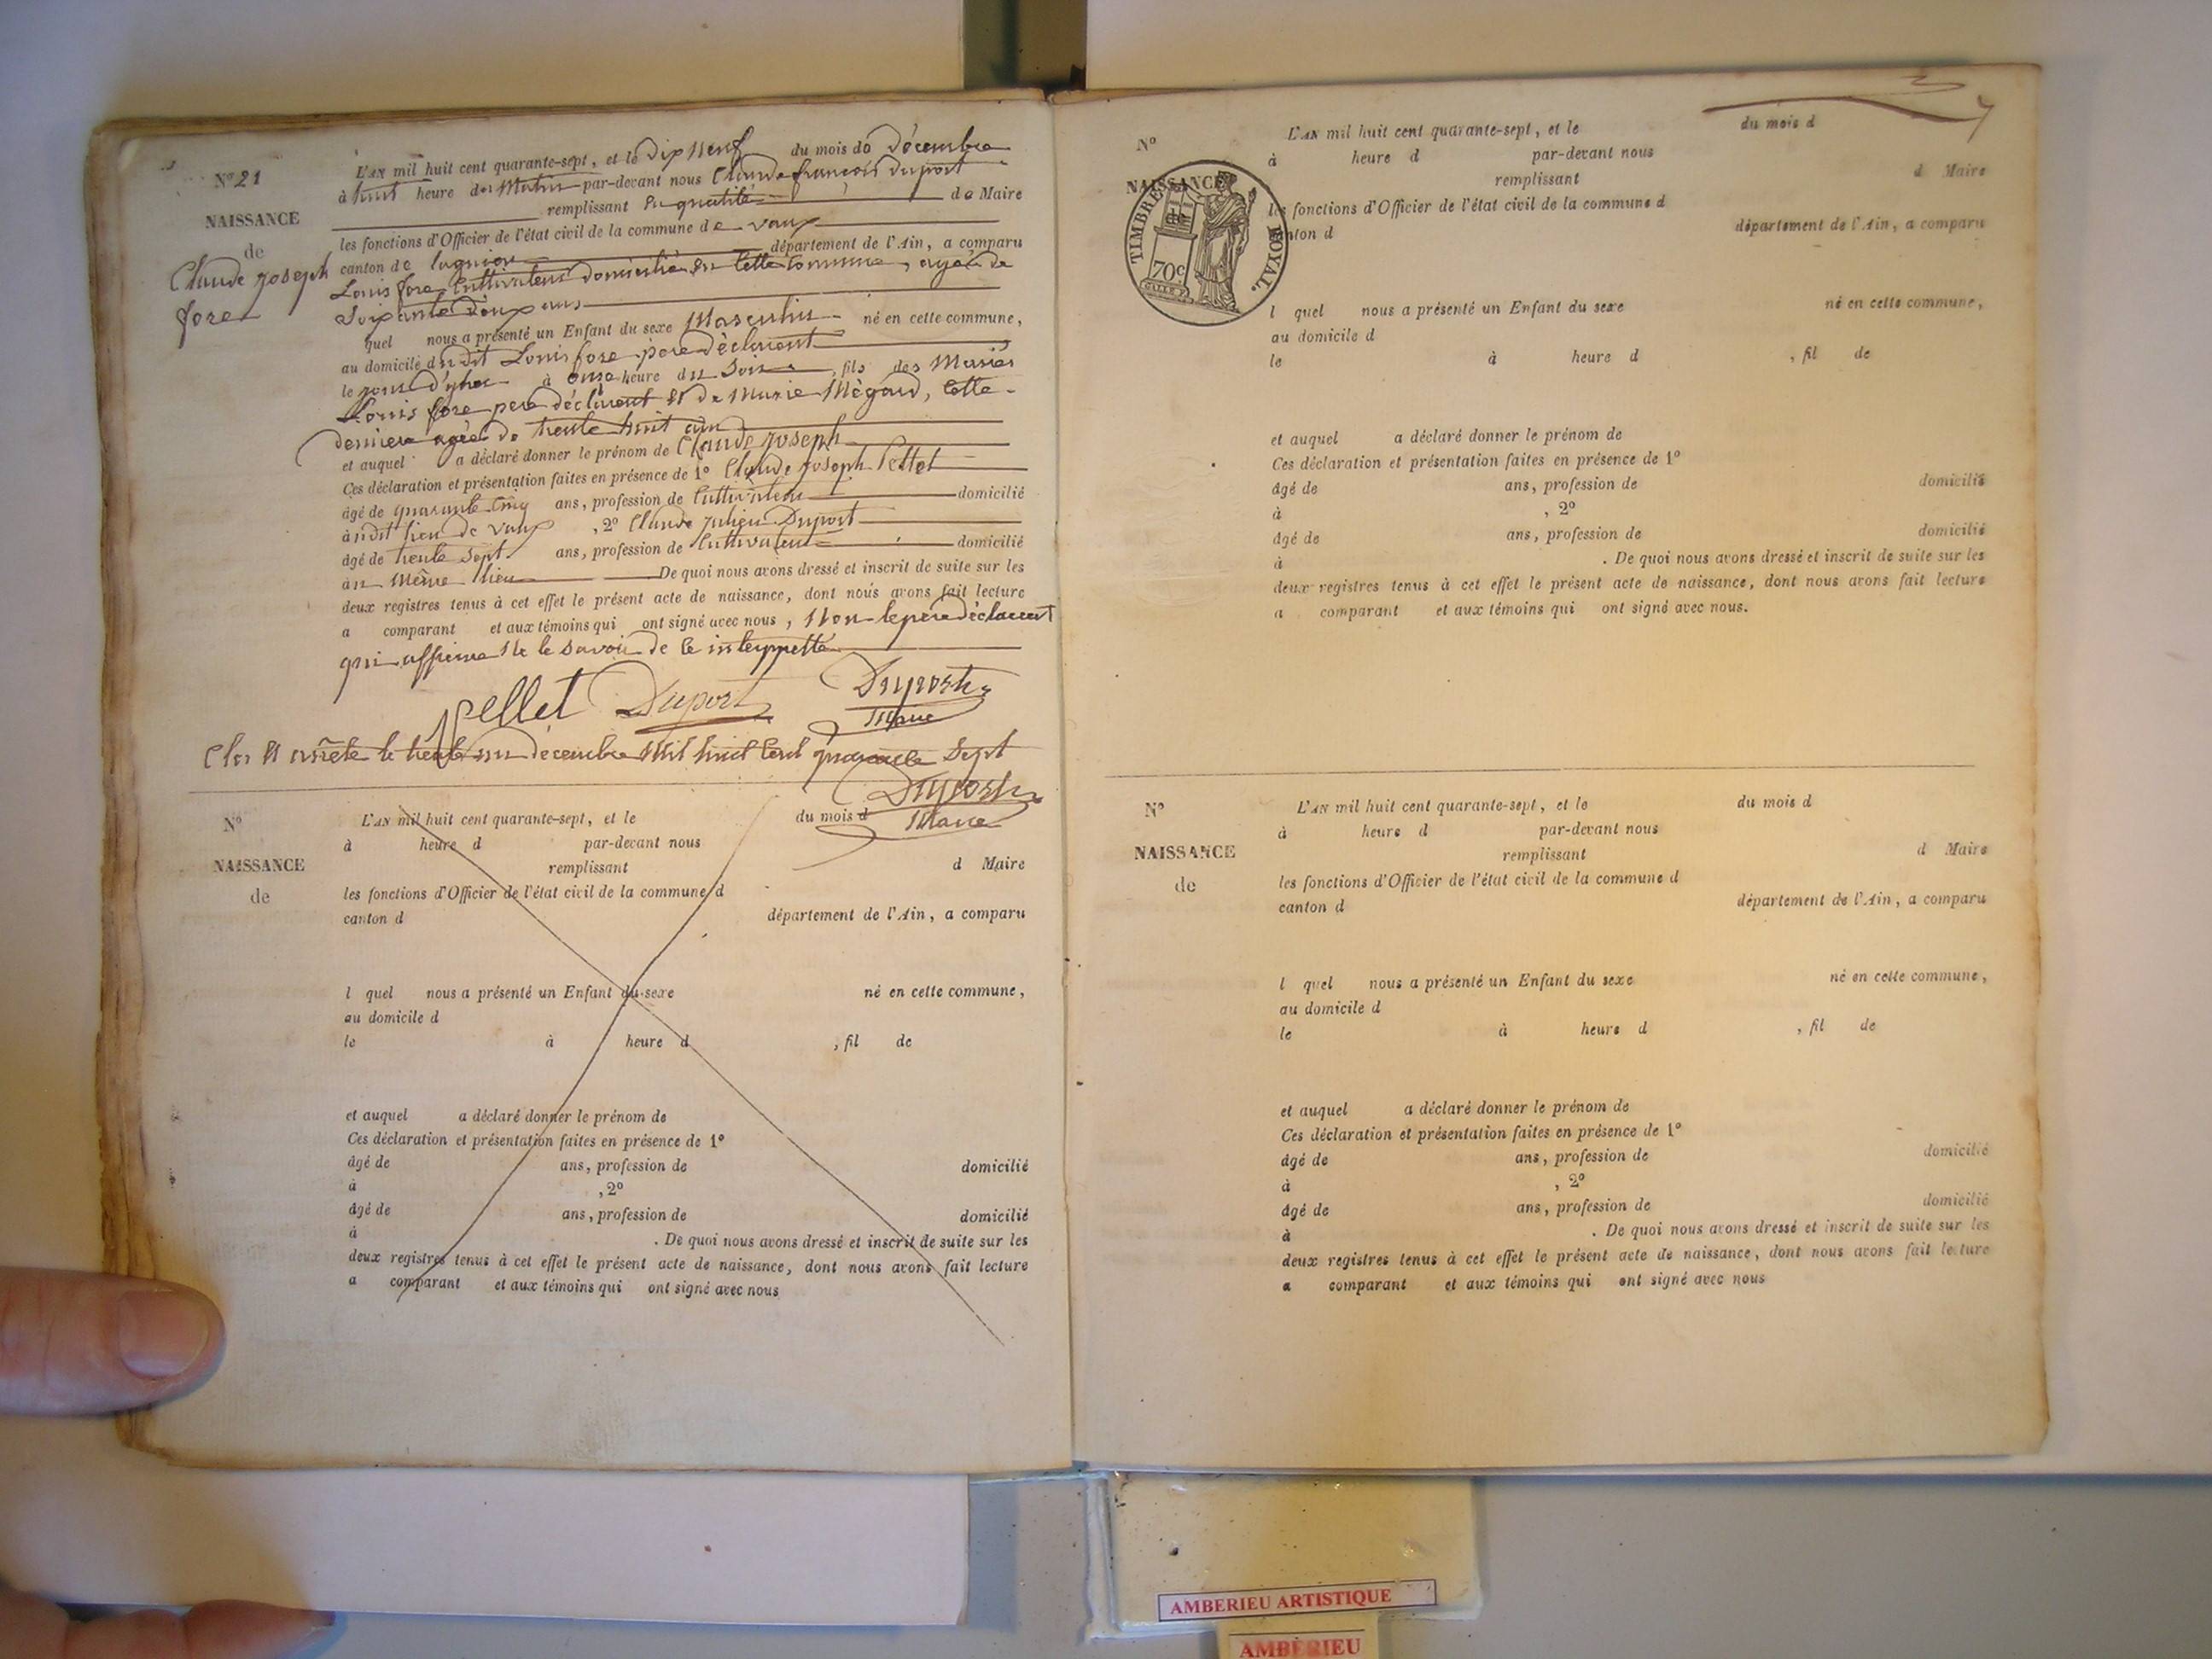 N° 21
NAISSANCE
de
Claude Joseph
fore
L'AN mil huit cent quarante-sept, et le dix neuf du mois de décembre
à huit heure des Matin par-devant nous Claude françois duport
remplissant en qualité de Maire
les fonctions d'Officier de l'état civil de la commune de vaux
canton de lagnieu département de l'Ain, a comparu
Louis fore Cultivateur domicilié en Cette Commune, agé de
Soixante Doux ans
quel nous a présenté un Enfant du sexe Masculin né en cette commune,
au domicile dudit Louis fore pere déclarent
le jour d'yher à onze heure du Soir, fils des Mariés
Louis fore pere déclarent et de Marie Mégard, Cette
derniere agée de trente huit ans
et auquel a déclaré donner le prénom de Claude Joseph
Ces déclaration et présentation faites en présence de 1° Claude Joseph Pellet
âgé de quarante Cinq ans, profession de Cultivateur domicilié
àudit lieu de vaux, 2° Claude Julien Duport
âgé de trente Sept ans, profession de Cultivateur domicilié
àu Même lieu De quoi nous avons dressé et inscrit de suite sur les
deux registres tenus à cet effet le présent acte de naissance, dont nous avons fait lecture
a comparant et aux témoins qui ont signé avec nous, Non le pere déclarent
qui affirme Ne le Savoir de Ce interppellé
Pellet Duport Duport
Maire
Clos et arrêté le trente un decembre Mil huit Cent quarante Sept
Duport
Maire
N°
NAISSANCE
de
L'AN mil huit cent quarante-sept, et le du mois d
à heure d par-devant nous
remplissant d Maire
les fonctions d'Officier de l'état civil de la commune d
canton d département de l'Ain, a comparu
l quel nous a présenté un Enfant du sexe né en cette commune,
au domicile d
le à heure d , fil de
et auquel a déclaré donner le prénom de
Ces déclaration et présentation faites en présence de 1°
âgé de ans, profession de domicilié
à , 2°
âgé de ans, profession de domicilié
à . De quoi nous avons dressé et inscrit de suite sur les
deux registres tenus à cet effet le présent acte de naissance, dont nous avons fait lecture
a comparant et aux témoins qui ont signé avec nous
7
N°
NAISSANCE
TIMBRE ROYAL.
70c
L'AN mil huit cent quarante-sept, et le du mois d
à heure d par-devant nous
remplissant d Maire
les fonctions d'Officier de l'état civil de la commune d
canton d département de l'Ain, a comparu
l quel nous a présenté un Enfant du sexe né en cette commune,
au domicile d
le à heure d , fil de
et auquel a déclaré donner le prénom de
Ces déclaration et présentation faites en présence de 1°
âgé de ans, profession de domicilié
à , 2°
âgé de ans, profession de domicilié
à . De quoi nous avons dressé et inscrit de suite sur les
deux registres tenus à cet effet le présent acte de naissance, dont nous avons fait lecture
a comparant et aux témoins qui ont signé avec nous.
N°
NAISSANCE
de
L'AN mil huit cent quarante-sept, et le du mois d
à heure d par-devant nous
remplissant d Maire
les fonctions d'Officier de l'état civil de la commune d
canton d département de l'Ain, a comparu
l quel nous a présenté un Enfant du sexe né en cette commune,
au domicile d
le à heure d , fil de
et auquel a déclaré donner le prénom de
Ces déclaration et présentation faites en présence de 1°
âgé de ans, profession de domicilié
à , 2°
âgé de ans, profession de domicilié
à . De quoi nous avons dressé et inscrit de suite sur les
deux registres tenus à cet effet le présent acte de naissance, dont nous avons fait lecture
a comparant et aux témoins qui ont signé avec nous
AMBERIEU ARTISTIQUE
AMBERIEU